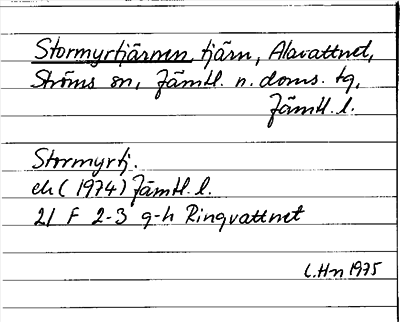 Stormyrtjärnen, tjärn, Alavattnet,
Ströms sn, Jämtl. n. doms. tg,
Jämtl. l.
Stormyrtj.
ek (1974) Jämtl. l.
21 F 2-3 g-h Ringvattnet
C.Hn 1975